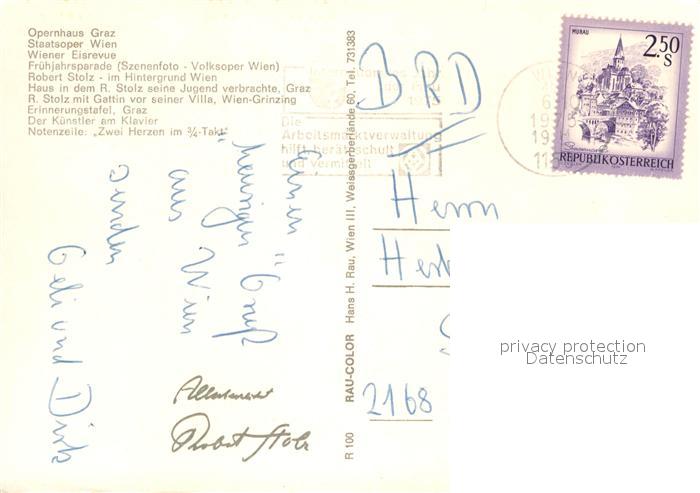 Opernhaus Graz
Staatsoper Wien
Wiener Eisrevue
Frühjahrsparade (Szenenfoto - Volksoper Wien)
Robert Stolz - im Hintergrund Wien
Haus in dem R. Stolz seine Jugend verbrachte, Graz
R. Stolz mit Gattin vor seiner Villa, Wien-Grinzing
Erinnerungstafel, Graz
Der Künstler am Klavier
Notenzeile: „Zwei Herzen im ¾-Takt"
Einen
"heurigen" Gruß
aus Wien
senden
Geli und Dirk
Robert Stolz
R 100 RAU-COLOR Hans H. Rau, Wien III, Weissgerberlände 60, Tel. 731383
Die
Arbeitsmarktverwaltung
hilft berät schult
und vermittelt
MURAU
2.50 S
REPUBLIK ÖSTERREICH
BRD
Herrn
2168
privacy protection
Datenschutz